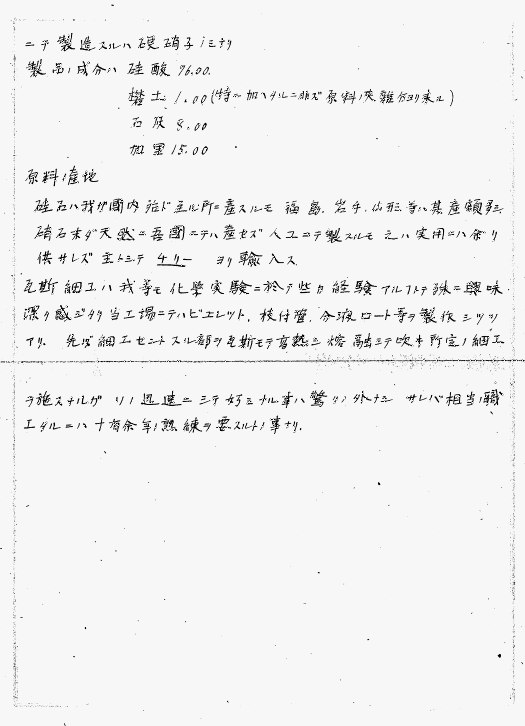 ニテ製造スルハ硬硝子ノミナリ
製品ノ成分ハ 硅酸 76.00.
礬土 1.00 (特ニ加ヘタルニ非ズ原料ノ夾雑分ヨリ来ル)
石灰 8.00
加里 15.00
原料ノ産地
硅石ハ我ガ國内殆ド至ル所ニ産スルモ 福島、岩手、山形等ハ其産額多シ
硝石未ダ天然ニ吾國ニテハ産セズ人工ニテ製スルモ之ハ実用ニハ余リ
供サレズ主トシテ チリー ヨリ輸入ス
瓦斯細工ハ我等モ化學実験ニ於テ些カ経験アルフトテ殊ニ興味
深ク感ジタリ当工場ニテハビユレット、枝付管、分液ロート等ヲ製作シツツ
アリ. 先ヅ細工セントスル部ヲ瓦斯モテ高熱シ熔融シテ吹キ所定ノ細工
ヲ施スナルガ ソノ迅速ニシテ好ミナル事ハ驚クノ外ナシ サレバ相当ノ職
工タルニハ十有余年ノ熟練ヲ要スルトノ事ナリ.